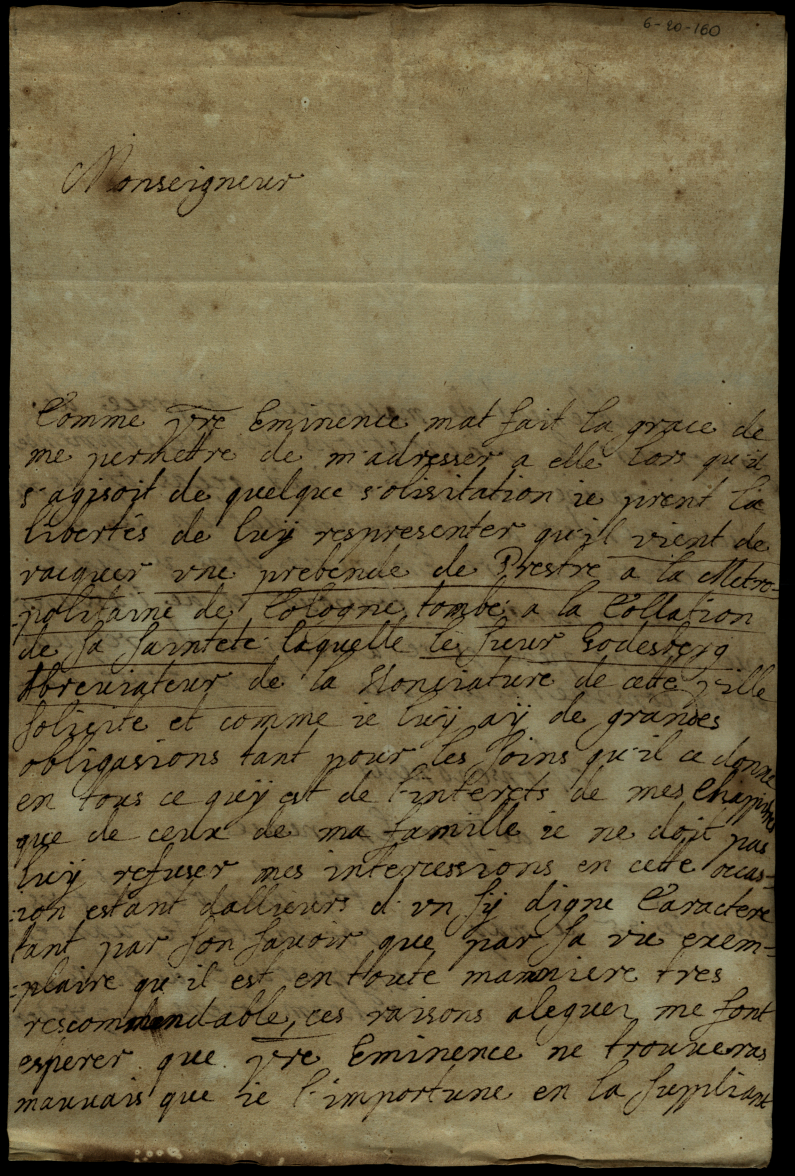 6-20-160
Monseigneur
Comme vre Eminence mat fait la grace de
me permettre de m'adresser a elle lors qu'il
s'agisoit de quelque solisitation ie prent la
libertés de luÿ respresenter qu'il vient de
vacquer vne prebende de Prestre a la Metro-
-politaine de Cologne, tombé a la Collation
de sa Sainteté laquelle le sieur Godesberg
Abreuiateur de la Nonciature de cette ville
solicite et comme ie luÿ aÿ de grandes
obligasions tant pour les soins qu'il ce donne
en tous ce quÿ est de l'interets de mes Chapitres
que de ceux de ma famille ie ne doit pas
luÿ refuser mes intercessions en cette ocas-
-ion estant dallieurs d'vn sÿ digne Caractere
tant par son savoir que par sa vie exem-
-plaire qu'il est en toute manniere tres
rescommendable, ces raisons aleguez me font
esperer que vre Eminence ne trouueras
mauuais que ie l'importune en la suppliant